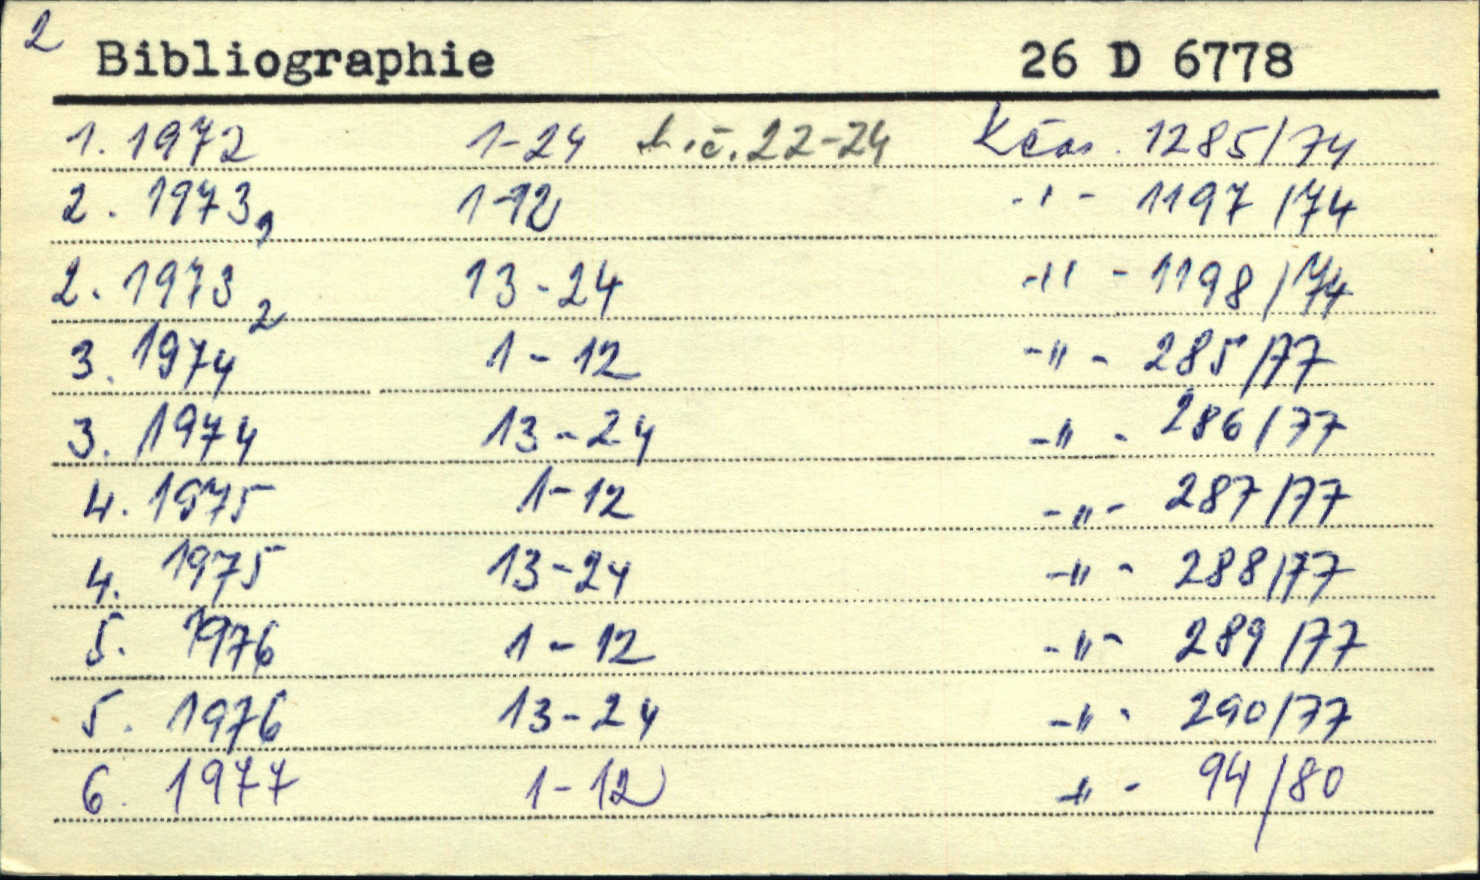 2
Bibliographie 26 D 6778
1. 1972 1-24 ch.č. 22-24 Kčas. 1285/74
2. 1973, 1-12 -"- 1197/74
2. 1973 2 13-24 -"- 1198/74
3. 1974 1-12 -"- 285/77
3. 1974 13-24 -"- 286/77
4. 1975 1-12 -"- 287/77
4. 1975 13-24 -"- 288/77
5. 1976 1-12 -"- 289/77
5. 1976 13-24 -"- 290/77
6. 1977 1-12 -"- 94/80